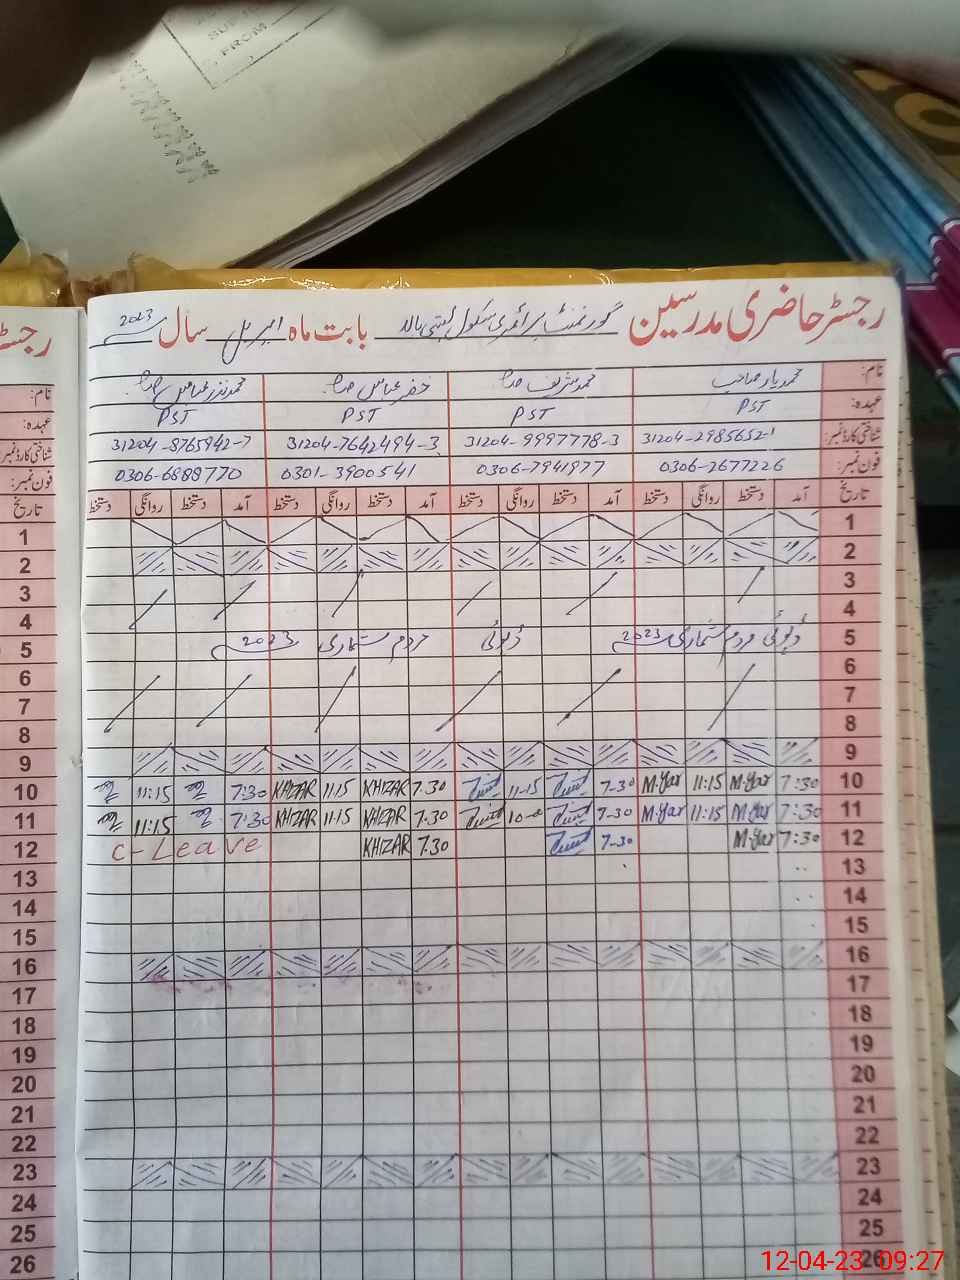 SUP
FROM
رجسٹر حاضری مدرسین گورنمنٹ پرائمری سکول بستی بابت ماہ اپریل سال 2023
نام: محمد یار صاحب محمد شریف صاحب خضر عباس صاحب محمد نذر عباس صاحب
عہدہ: PST PST PST PST
شناختی کارڈ نمبر: 31204-2985652-1 31204-9997778-3 31204-7642494-3 31204-8765942-7
فون نمبر: 0306-2677226 0306-7941977 0301-3900541 0306-6888770
تاریخ آمد دستخط روانگی دستخط آمد دستخط روانگی دستخط آمد دستخط روانگی دستخط آمد دستخط روانگی دستخط
1
2
3
4
5 ڈیوٹی مردم شماری 2023 ڈیوٹی مردم شماری 2023
6
7
8
9
10 7:30 M.Yar 11:15 M.Yar 7-30 11-15 7.30 KHIZAR 11:15 KHIZAR 7:30 11:15
11 7:30 M.Yar 11:15 M.Yar 7-30 7.30 KHIZAR 11:15 KHIZAR 7:30 11:15
12 7:30 M.Yar 7-30 7.30 KHIZAR C-Leave
13
14
15
16
17
18
19
20
21
22
23
24
25
26
رجسٹ
نام:
عہدہ:
شناختی کارڈ نمبر:
فون نمبر:
تاریخ
1
2
3
4
5
6
7
8
9
10
11
12
13
14
15
16
17
18
19
20
21
22
23
24
25
26
12-04-23 09:27